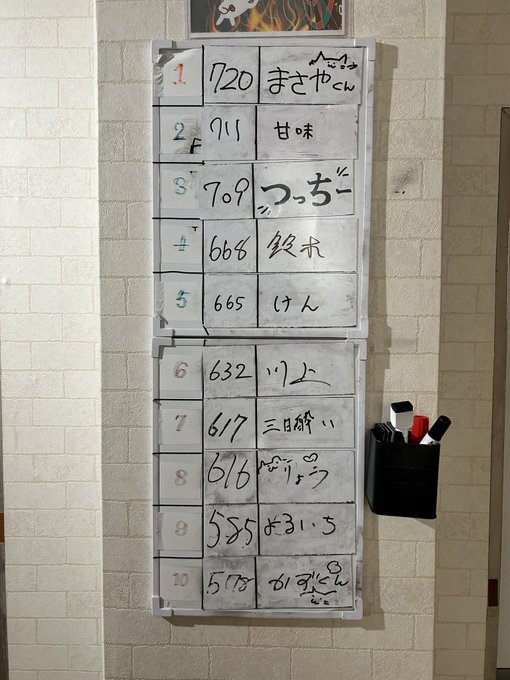 1 720 まさやくん
2 711 甘味
3 709 つっちー
4 668 鈴木
5 665 けん
6 632 川上
7 617 三日酔い
8 616 りょう
9 585 よるいち
10 578 かずくん